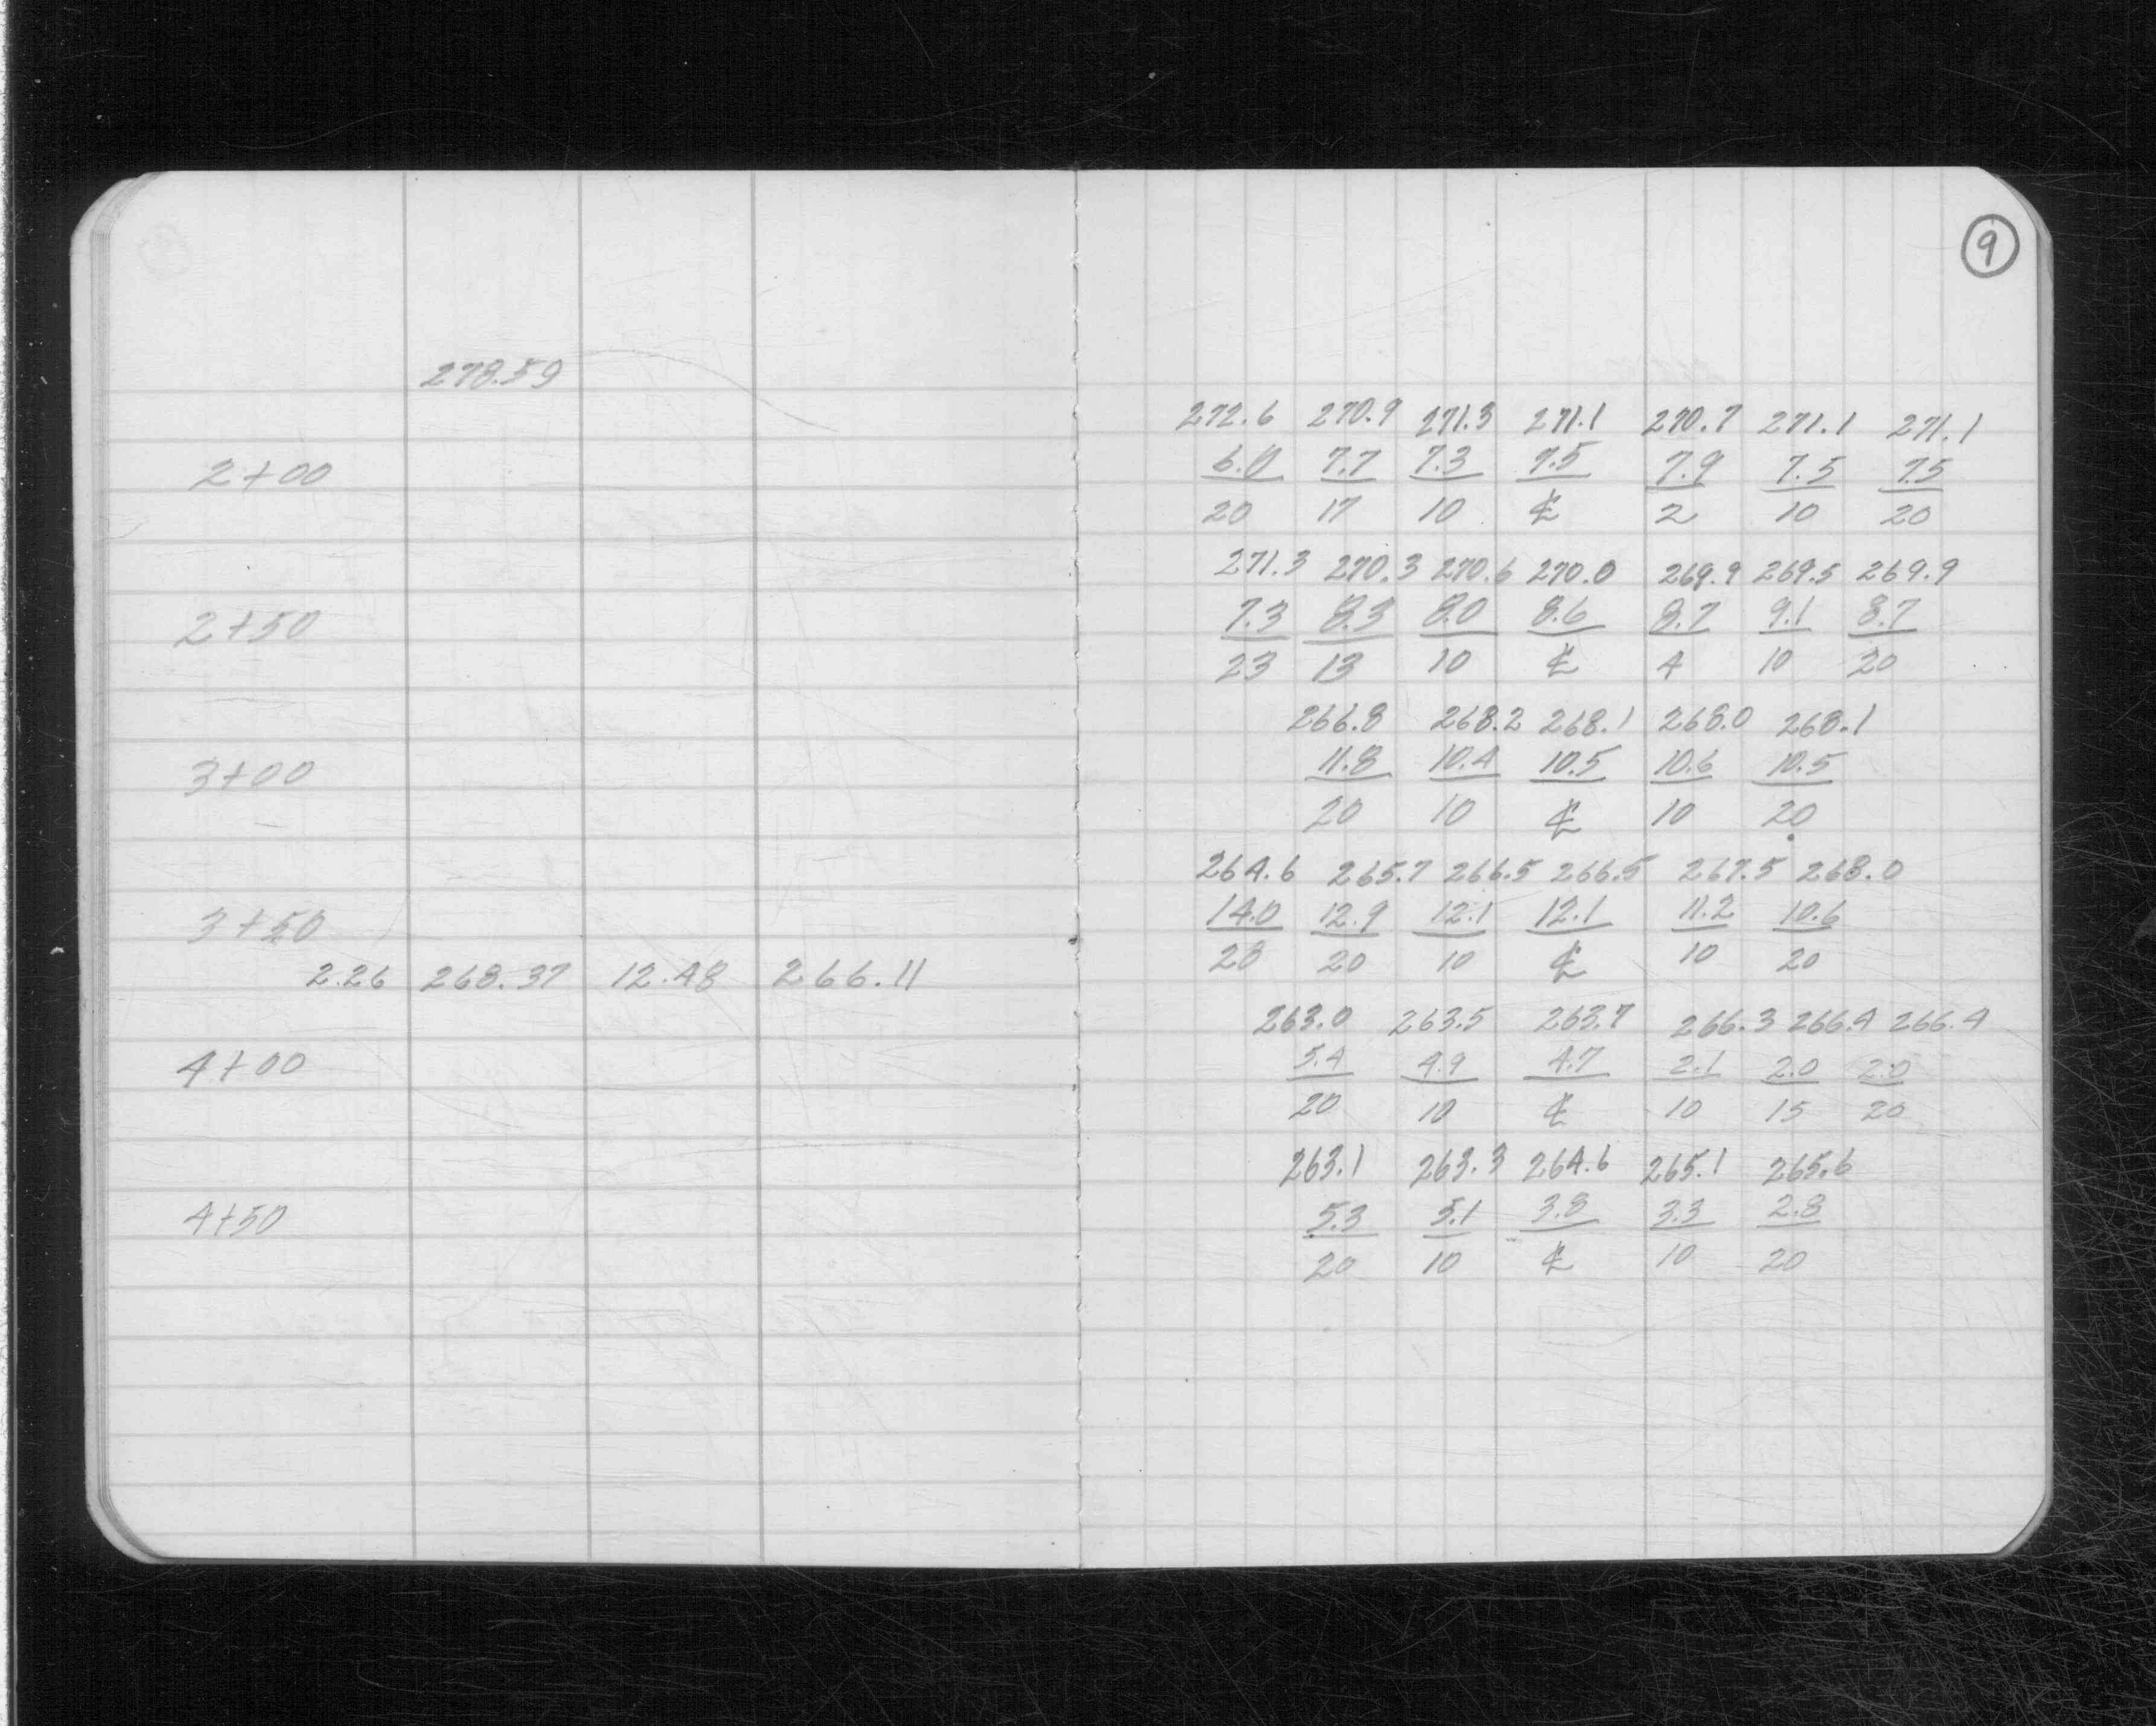 9
278.59
272.6 270.9 271.3 271.1 270.7 271.1 271.1
2+00 6.0 7.7 7.3 7.5 7.9 7.5 7.5
20 17 10 ℄ 2 10 20
271.3 270.3 270.6 270.0 269.9 269.5 269.9
2+50 7.3 8.3 8.0 8.6 8.7 9.1 8.7
23 13 10 ℄ 4 10 20
266.8 268.2 268.1 268.0 268.1
3+00 11.8 10.4 10.5 10.6 10.5
20 10 ℄ 10 20
264.6 265.7 266.5 266.5 267.5 268.0
3+50 14.0 12.9 12.1 12.1 11.2 10.6
28 20 10 ℄ 10 20
2.26 268.37 12.48 266.11
263.0 263.5 263.7 266.3 266.4 266.4
4+00 5.4 4.9 4.7 2.1 2.0 2.0
20 10 ℄ 10 15 20
263.1 263.3 264.6 265.1 265.6
4+50 5.3 5.1 3.8 3.3 2.8
20 10 ℄ 10 20